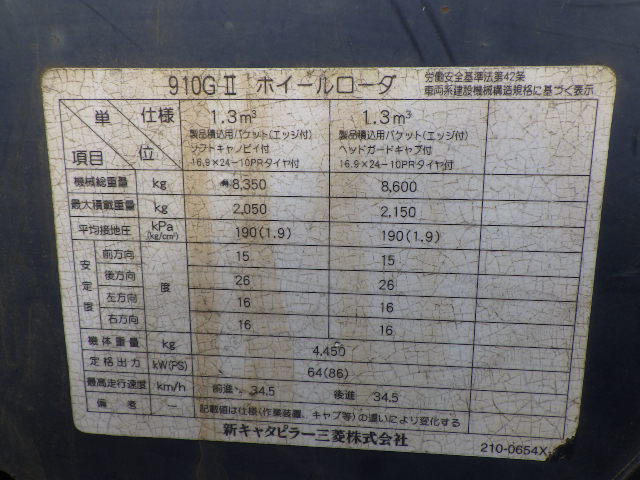 910GⅡ ホイールローダ 労働安全基準法第42条
車両系建設機械構造規格に基づく表示
単位 仕様 項目
1.3m³ 1.3m³
製品積込用バケット(エッジ付) 製品積込用バケット(エッジ付)
ソフトキャノピイ付 ヘッドガードキャブ付
16.9×24-10PRタイヤ付 16.9×24-10PRタイヤ付
機械総重量 kg 8,350 8,600
最大積載重量 kg 2,050 2,150
平均接地圧 kPa (kg/cm²) 190(1.9) 190(1.9)
安定度 前方向 度 15 15
後方向 26 26
左方向 16 16
右方向 16 16
機体重量 kg 4,450
定格出力 kW(PS) 64(86)
最高走行速度 km/h 前進 34.5 後進 34.5
備考 — 記載値は仕様(作業装置、キャブ等)の違いにより変化する
新キャタピラー三菱株式会社
210-0654X